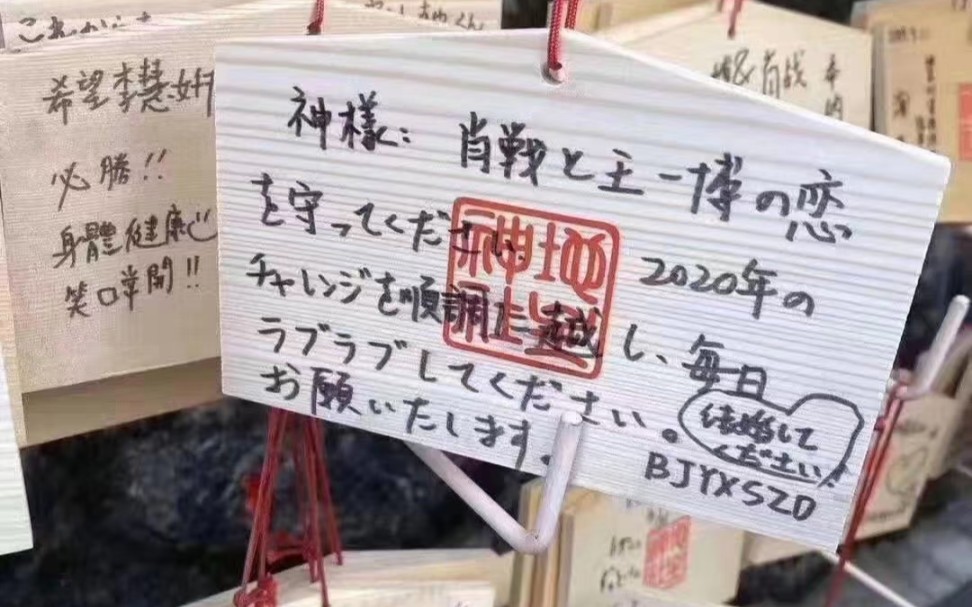 希望李慧
必勝!!
身體健康
笑口常開!!
神様: 肖戦と王一博の恋
を守ってください。
2020年の
チャレンジを順調に越し、毎日
ラブラブしてください。
お願いいたします。
結婚して
ください!
BJYXSZD
地主神社
肖战